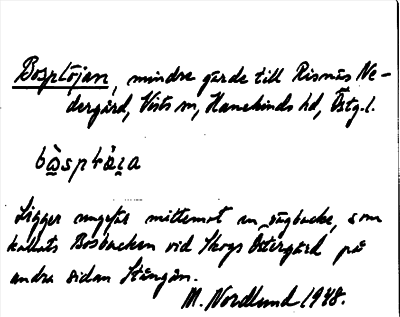 Bosplöjan, mindre gärde till Risnäs Ne-
dergård, Vists sn, Hanekinds hd, Östg.l.
Ligger ungefär mittemot en vägbacke, som
kallats Bosbacken vid Skogs Östergård på
andra sidan Stångån.
M. Nordlund 1948.